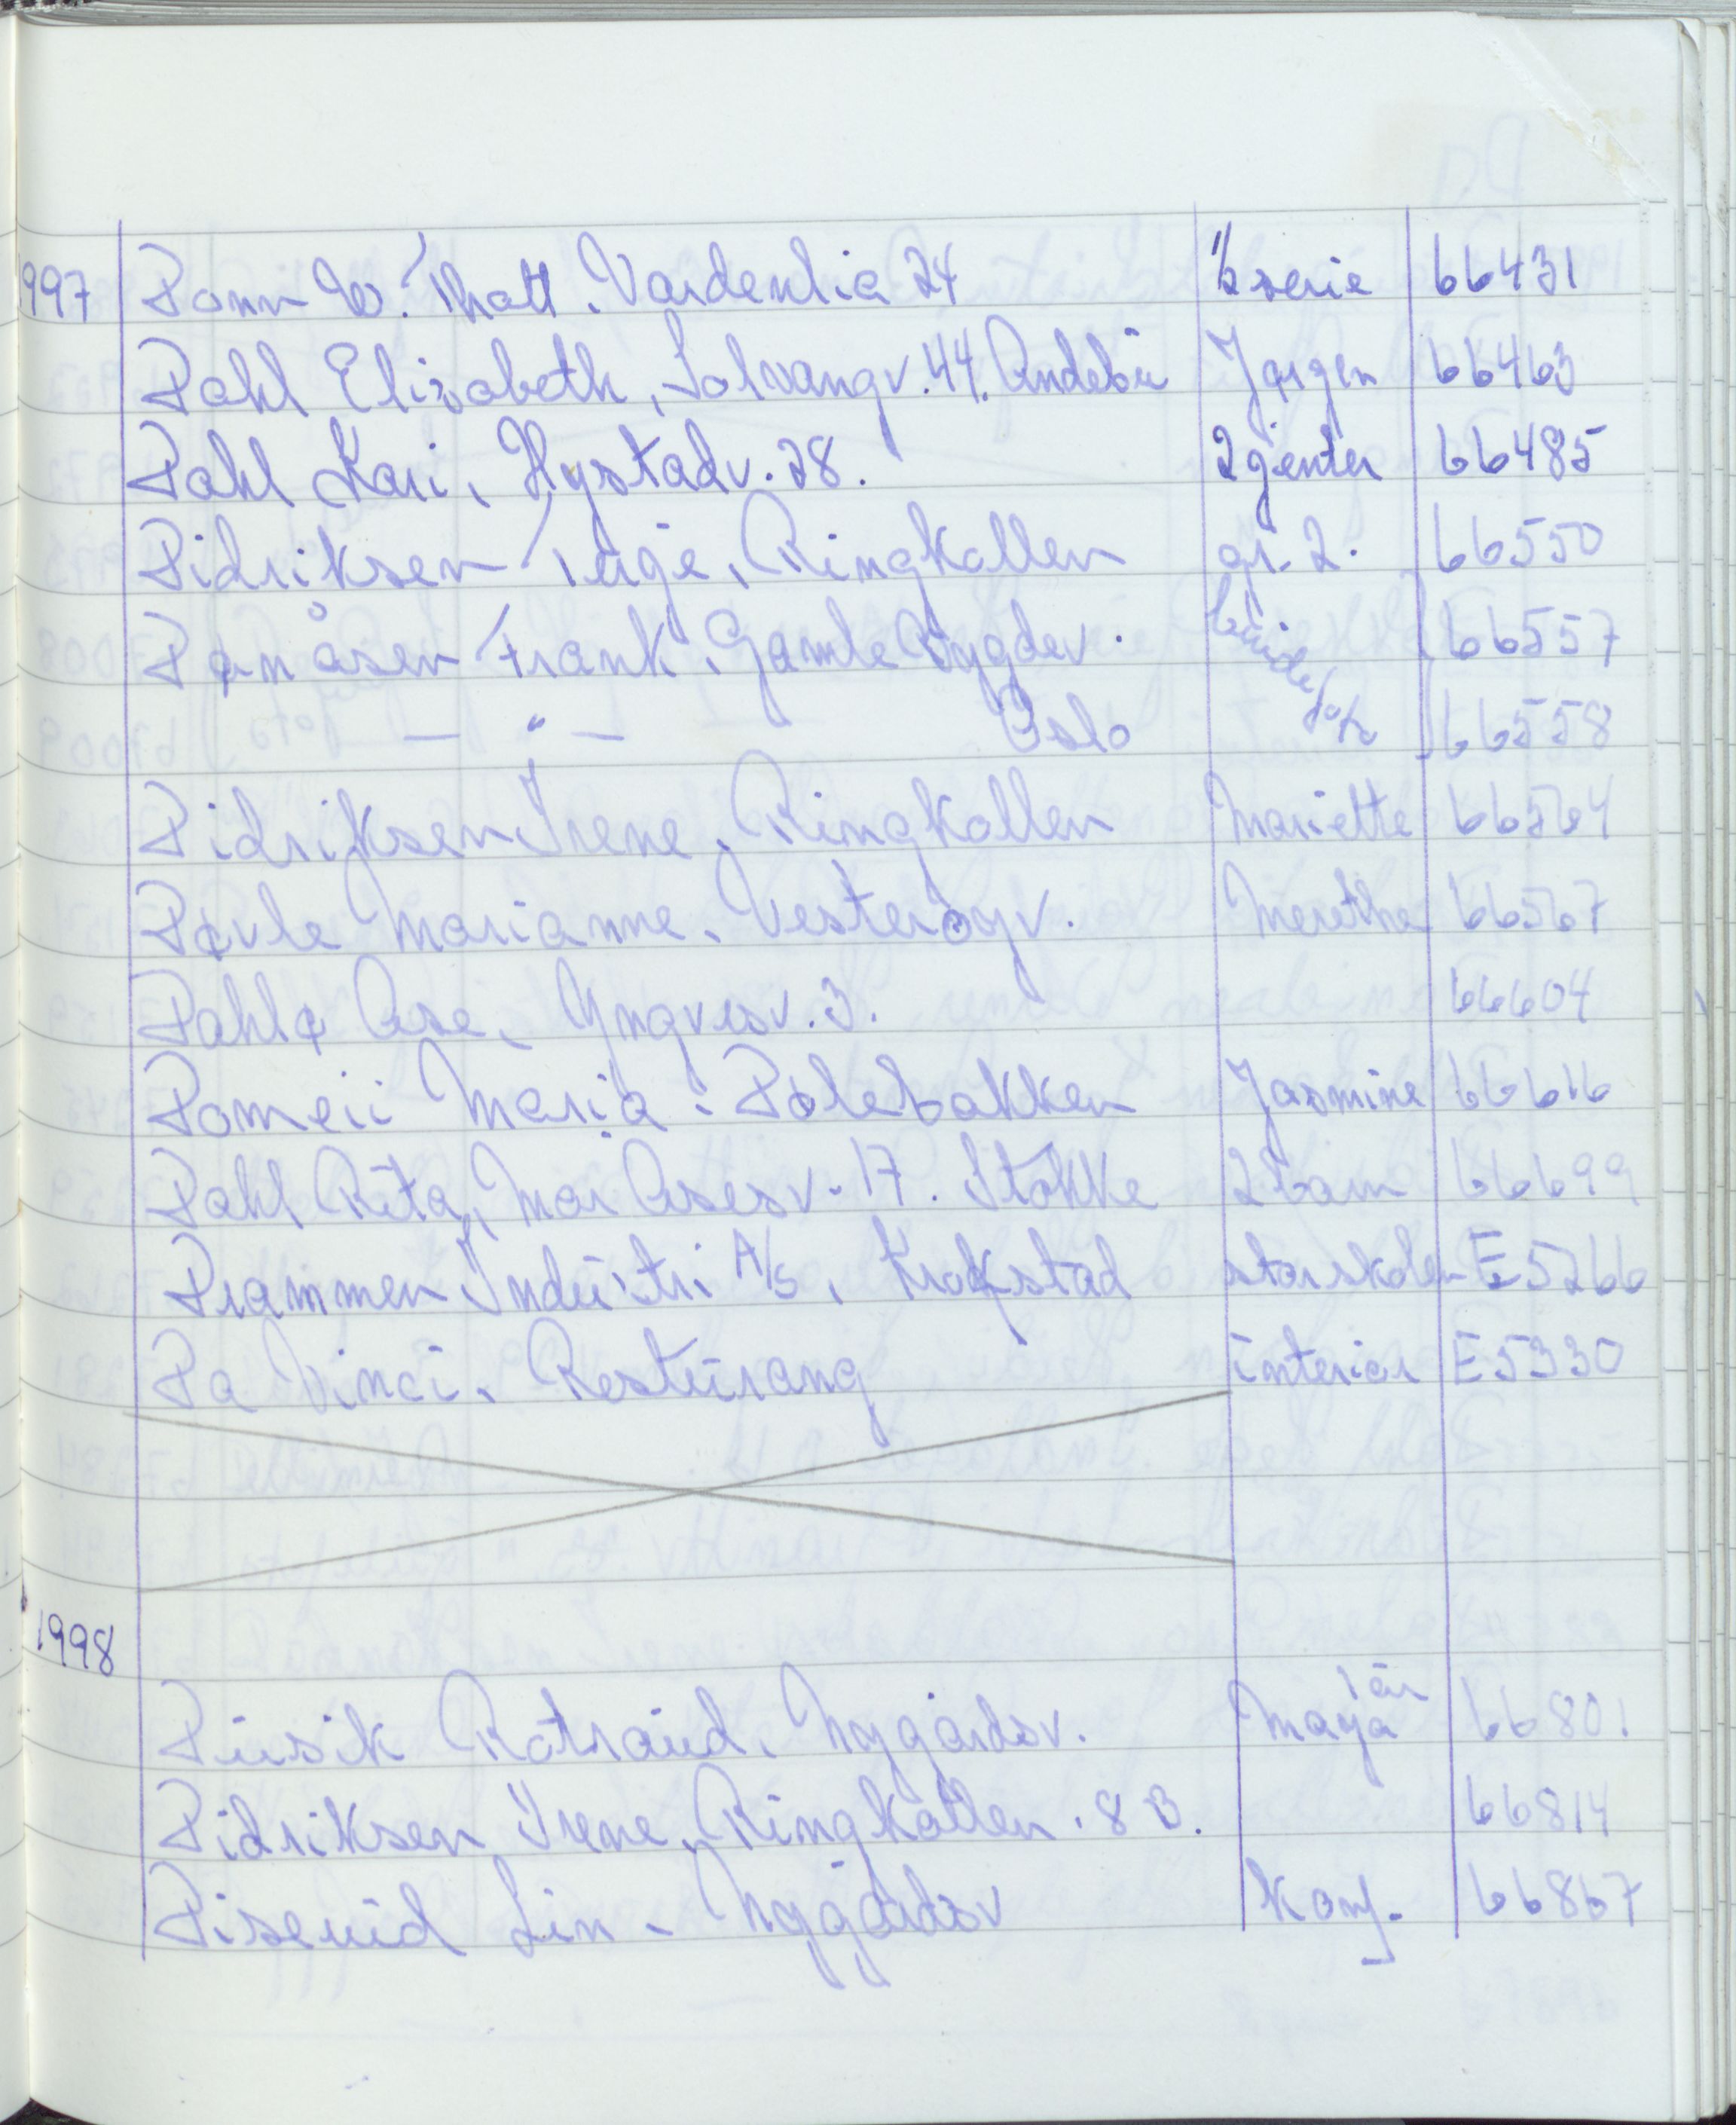 1997 Donn W. Thott. Vardenlia 24 ½ serie 66431
Dahl Elisabeth, Solvangv. 44. Andebu Jørgen 66463
Dahl Kari, Hystadv. 28. 2 jenter 66485
Didriksen Terje, Ringkollen gr. 2. 66550
Dømåsen Frank, Gamle Bygdev. brudefoto 66557
— " — Oslo 66558
Didriksen Irene, Ringkollen Mariette 66564
Døvle Marianne, Vesterøyv. Merethe 66567
Dahlø Åse, Yngvesv. 3. 66604
Domeii Maria, Dølebakken Jasmine 66616
Dahl Rita, Mor Åsesv. 17. Stokke 2 barn 66699
Drammen Industri A/S, Krokstad storskolen E5266
Da Vinci, Resturang interiør E5330
1998
1 år
Dusik Rotraud, Nygårdsv. Maya 66801
Didriksen Irene, Ringkollen. 8 B. 66814
Diseruid Lin, Nygårdsv Konf. 66867